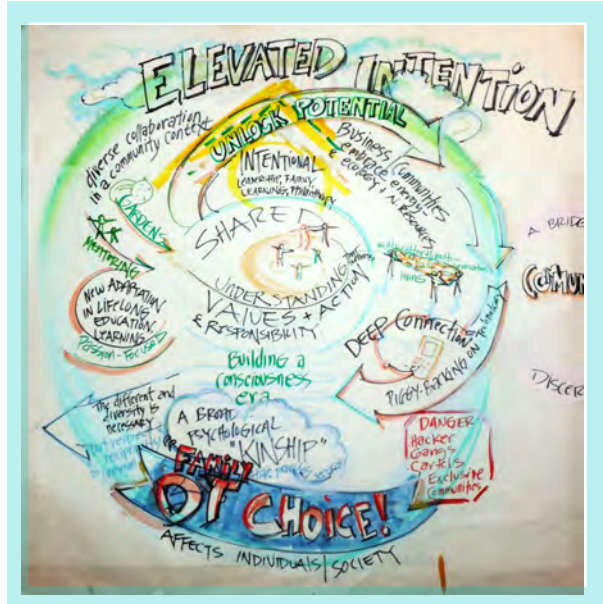 ELEVATED INTENTION
diverse collaboration
in a community context
UNLOCK POTENTIAL
INTENTIONAL
LEADERSHIP, FAMILY
LEARNING, PHILANTHROPY
Business/Communities
embrace energy
ecology + N. RESOURCES
GARDENS
MENTORING
SHARED
UNDERSTANDING
VALUES + ACTION
& RESPONSIBILITY
NEW ADAPTATION
IN LIFELONG
EDUCATION
LEARNING
Passion-Focused
DEEP CONNECTION
PIGGY-BACKING ON technology
Building a
consciousness
era
The different and
diversity is
necessary
A BROAD
PSYCHOLOGICAL
"KINSHIP"
FAMILY
OF CHOICE!
AFFECTS INDIVIDUALS/SOCIETY
DANGER
Hacker
Gangs
Cartels
Exclusive
Communities
A BRIDG
COMUN
DISCER